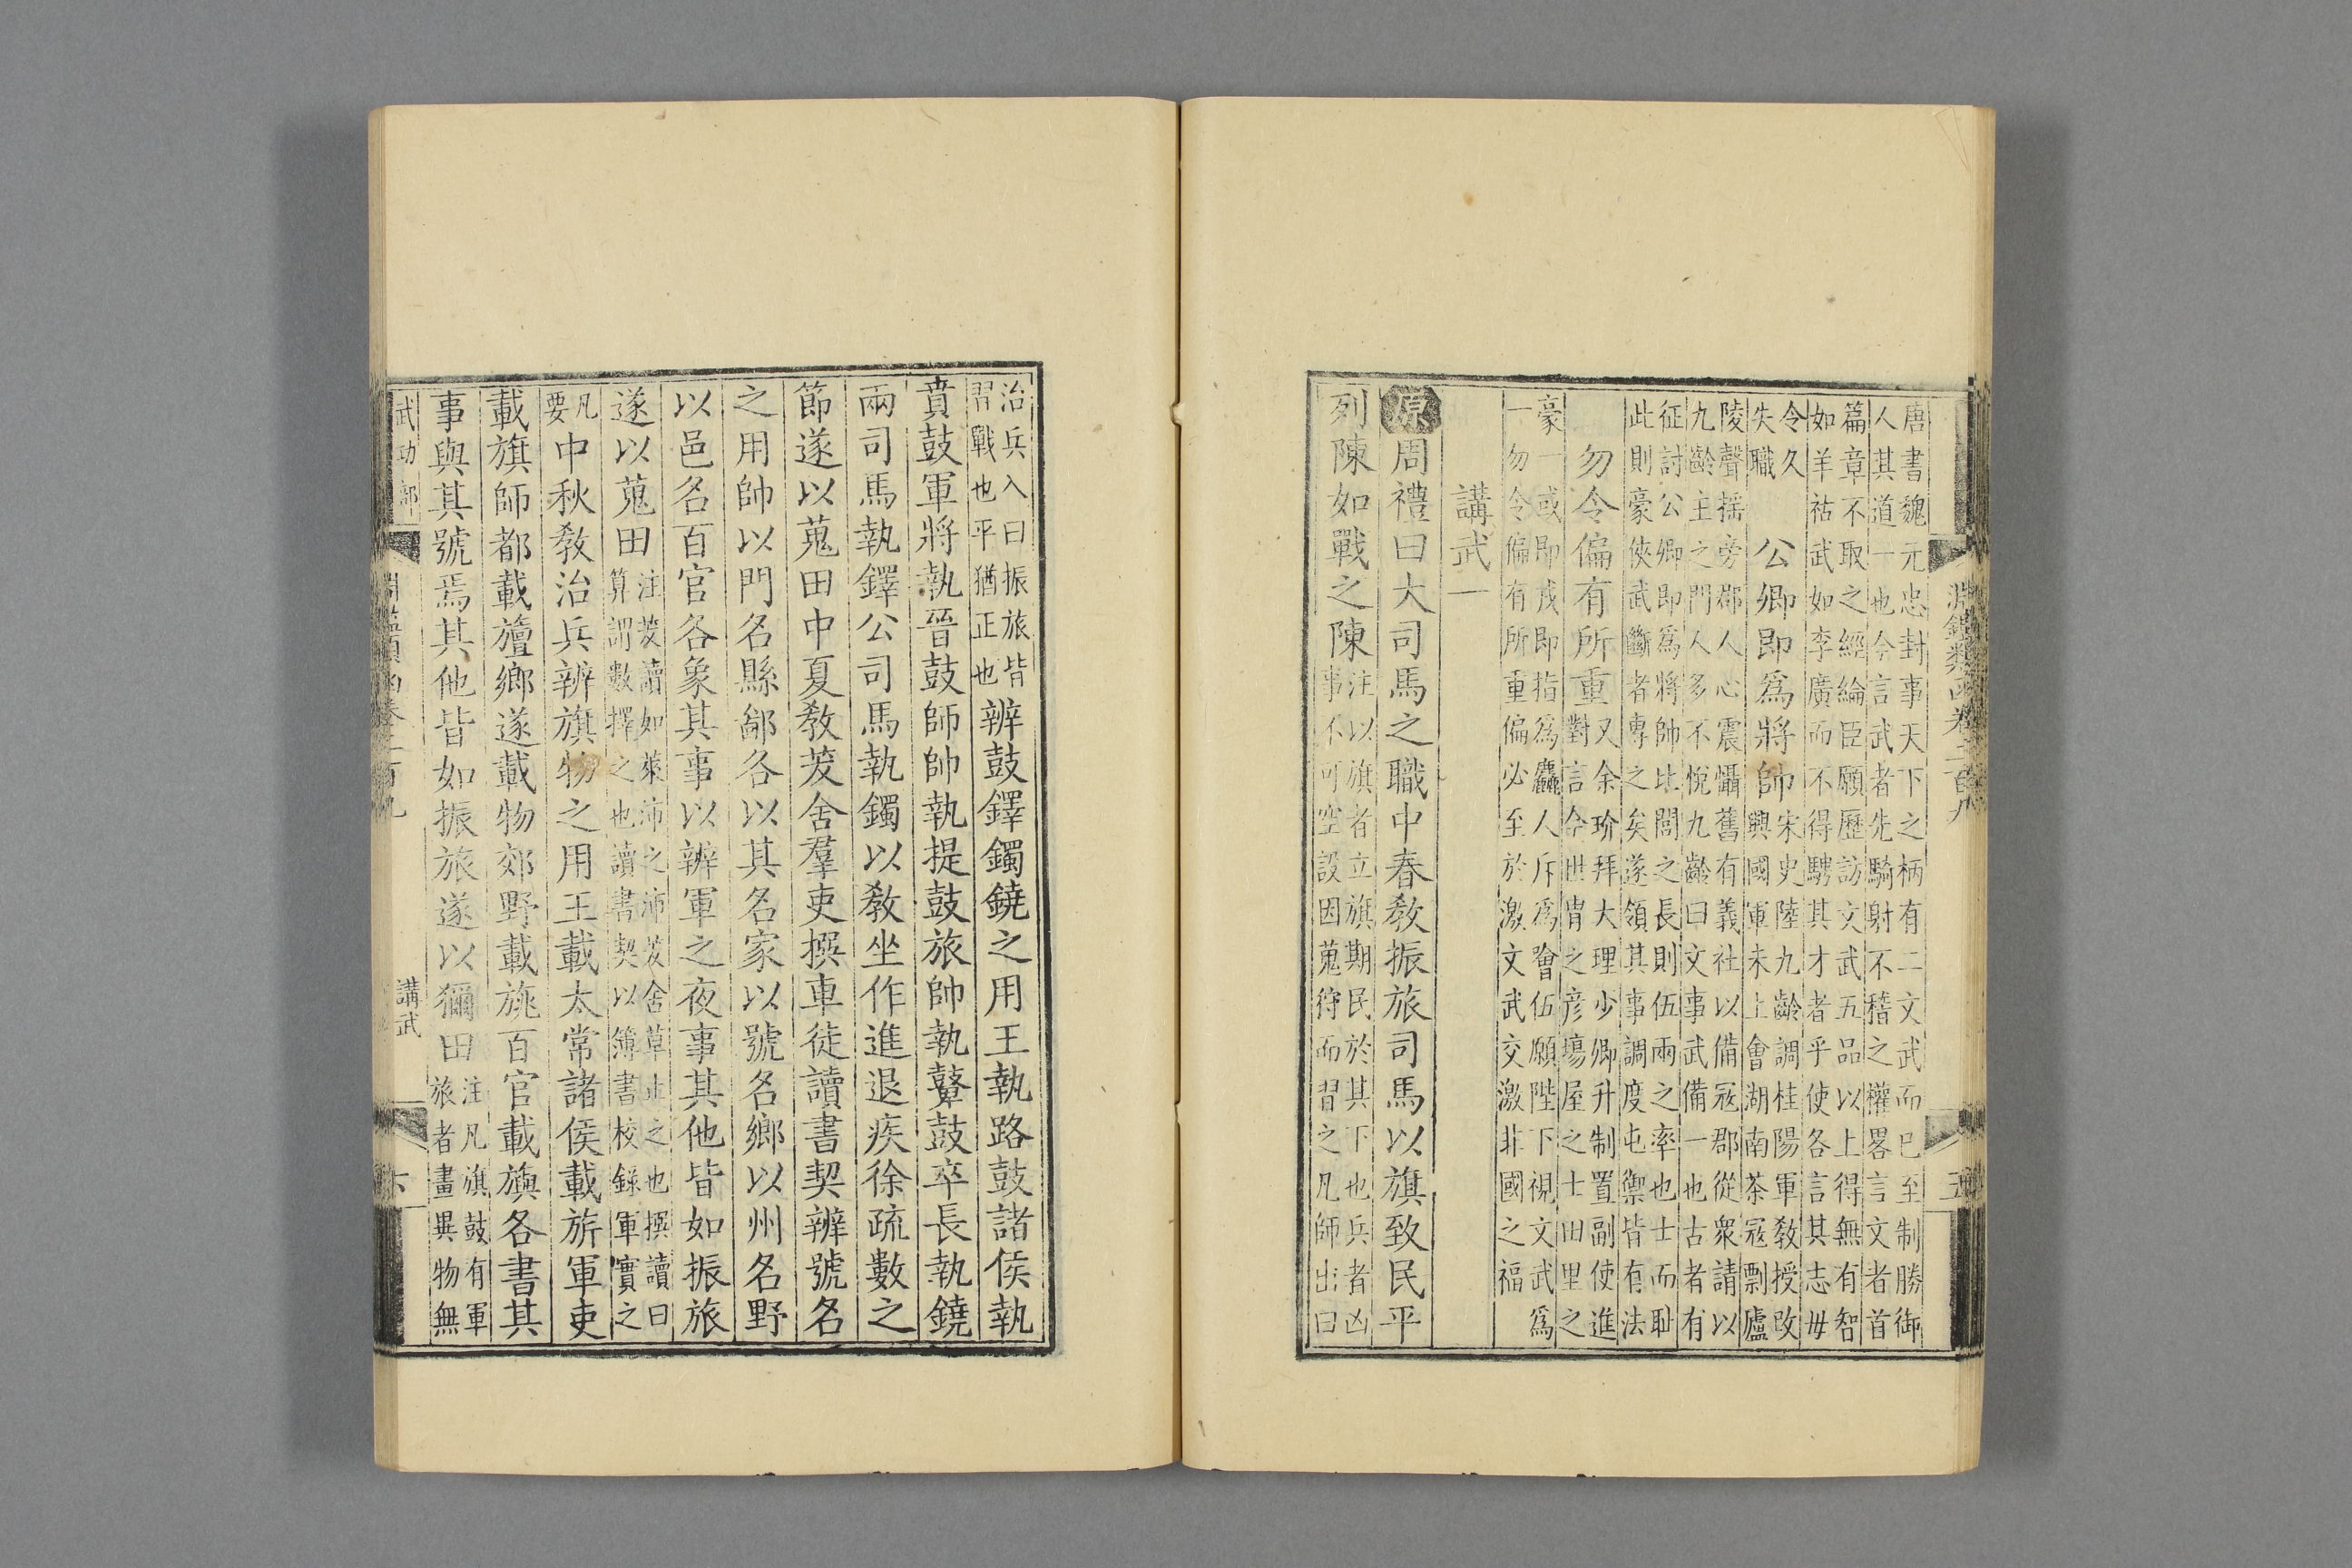 淵鑑類函卷二百九
五
唐書魏元忠封事天下之柄有二文武而已至制勝御
人其道一也今言武者先騎射不稽之權畧言文者首
篇章不取之經綸臣願歷訪文武五品以上得無有智
如羊祜武如李廣而不得騁其才者乎使各言其志毋
令久
失職
公卿即爲將帥
宋史陸九齡調桂陽軍敎授改
興國軍未上會湖南茶冦剽廬
陵聲揺旁郡人心震懾舊有義社以備冦郡從衆請以
九齡主之門人多不悅九齡曰文事武備一也古者有
征討公卿即爲將帥比閭之長則伍兩之率也士而恥
此則豪俠武斷者專之矣遂領其事調度屯禦皆有法
勿令偏有所重
又余玠拜大理少卿升制置副使進
對言今世胄之彦塲屋之士田里之
豪一或即戎即指爲麤人斥爲噲伍願陛下視文武爲
一勿令偏有所重偏必至於激文武交激非國之福
講武一
原周禮曰大司馬之職中春敎振旅司馬以旗致民平
列陳如戰之陳
注以旗者立旗期民於其下也兵者凶
事不可空設因蒐狩而習之凡師出曰
治兵入曰振旅皆
習戰也平猶正也
辨鼓鐸鐲鐃之用王執路鼓諸侯執
賁鼓軍將執晉鼓師帥執提鼓旅帥執鼙鼓卒長執鐃
兩司馬執鐸公司馬執鐲以敎坐作進退疾徐疏數之
節遂以蒐田中夏敎茇舍羣吏撰車徒讀書契辨號名
之用帥以門名縣鄙各以其名家以號名鄉以州名野
以邑名百官各象其事以辨軍之夜事其他皆如振旅
遂以蒐田
注茇讀如萊沛之沛茇舍草止之也撰讀曰
算謂數擇之也讀書契以簿書校錄軍實之
凡
要
中秋敎治兵辨旗物之用王載太常諸侯載旂軍吏
載旗師都載旜鄉遂載物郊野載旐百官載旟各書其
事與其號焉其他皆如振旅遂以獮田
注凡旗鼓有軍
旅者畫異物無
武功部
淵鑑類函卷二百九
講武
六